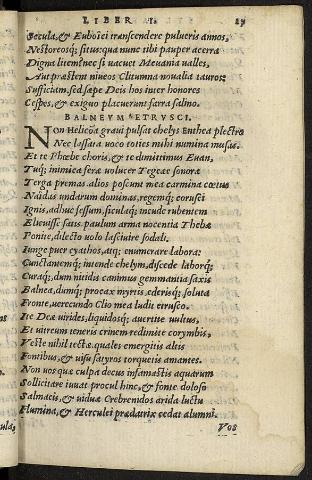 LIBER I. 29
Secula, & Euboici transcendere pulueris annos,
Nestoreosq; situs: qua nunc tibi pauper acerra
Digna litem? nec si uacuet Meuania ualles,
Aut præstent niueos Clitumna noualia tauros:
Sufficiam, sed sæpe Deis hos inter honores
Cespes, & exiguo placuerunt farra salino.
BALNEVM ETRVSCI.
Non Helicōa graui pulsat chelys Enthea plectro
Nec lassata uoco toties mihi numina musas.
Et te Phœbe choris, & te dimittimus Euan,
Tuq; inimica feræ volucer Tegeæe sonoræ
Terga premas. alios poscunt mea carmina cœtus
Naidas undarum dominas, regemq; corusci
Ignis, adhuc fessum, siculaq; incude rubentem
Elicuisse satis. paulum arma nocentia Thebæ
Ponite, dilecto uolo lasciuire sodali,
Iunge puer cyathos, atq; enumerare labora:
Cunctantemq; intende chelym, discede laborq;
Curaq;, dum nitidis canimus gemmantia saxis
Balnea, dumq; procax myrtis ederisq; soluta
Fronte, uerecundo Clio mea ludit etrusco.
Ite Deæ uirides, liquidosq; auertite uultus,
Et uitreum teneris crinem redimite corymbis,
Veste nihil tectæ. quales emergitis altis
Fontibus, & uisu satyros torquetis amantes.
Non uos quæ culpa decus infamastis aquarum
Sollicitare iuuat procul hinc, & fonte doloso
Salmacis, & uiduæ Crebrendos arida luctu
Flumina, & Herculei prædatrix cedat alumni.
Vos